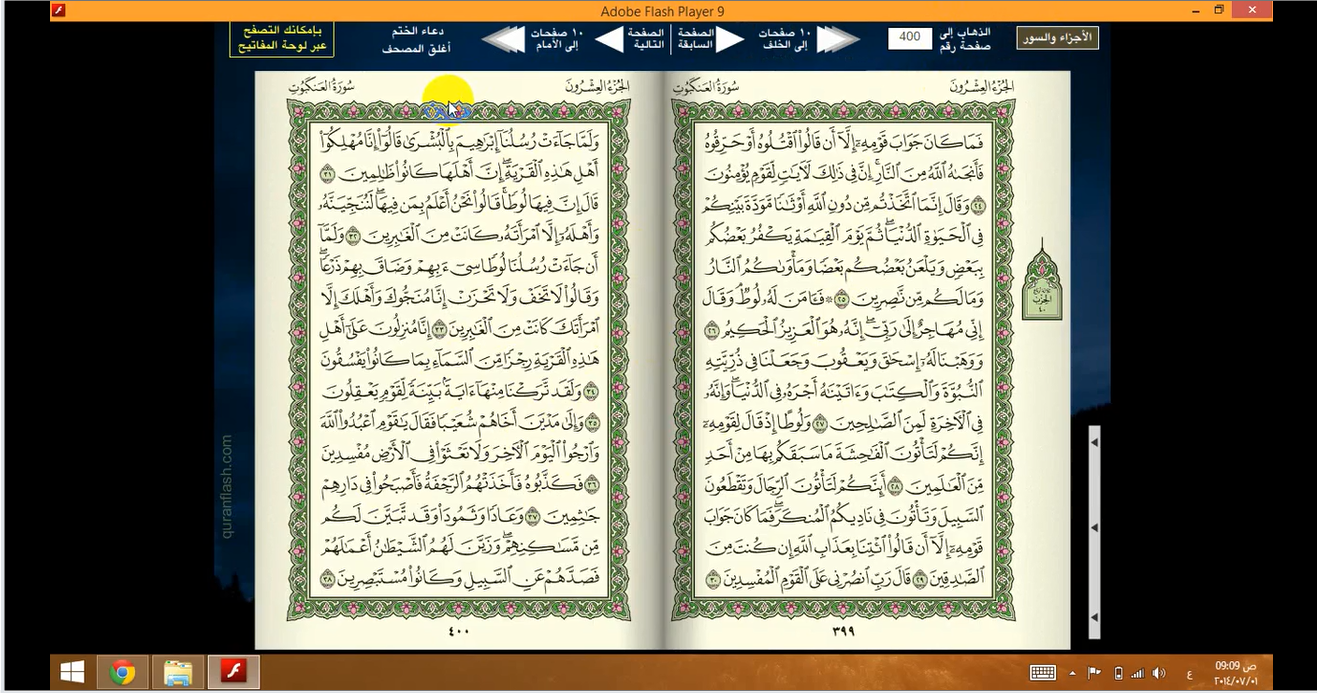 Adobe Flash Player 9
الأجزاء والسور
الذهاب إلى
صفحة رقم
400
١٠ صفحات
إلى الخلف
الصفحة
السابقة
الصفحة
التالية
١٠ صفحات
إلى الأمام
دعاء الختم
أغلق المصحف
بإمكانك التصفح
عبر لوحة المفاتيح
الجُزْءُ العِشْرُونَ
سُورَةُ العَنكَبُوتِ
فَمَا كَانَ جَوَابَ قَوْمِهِۦٓ إِلَّآ أَن قَالُوا۟ ٱقْتُلُوهُ أَوْ حَرِّقُوهُ
فَأَنجَىٰهُ ٱللَّهُ مِنَ ٱلنَّارِ ۚ إِنَّ فِى ذَٰلِكَ لَـَٔايَـٰتٍ لِّقَوْمٍ يُؤْمِنُونَ
٢٤ وَقَالَ إِنَّمَا ٱتَّخَذْتُم مِّن دُونِ ٱللَّهِ أَوْثَـٰنًا مَّوَدَّةَ بَيْنِكُمْ
فِى ٱلْحَيَوٰةِ ٱلدُّنْيَا ۖ ثُمَّ يَوْمَ ٱلْقِيَـٰمَةِ يَكْفُرُ بَعْضُكُم
بِبَعْضٍ وَيَلْعَنُ بَعْضُكُم بَعْضًا وَمَأْوَىٰكُمُ ٱلنَّارُ
وَمَا لَكُم مِّن نَّـٰصِرِينَ ٢٥ ۞ فَـَٔامَنَ لَهُۥ لُوطٌ ۘ وَقَالَ
إِنِّى مُهَاجِرٌ إِلَىٰ رَبِّىٓ ۖ إِنَّهُۥ هُوَ ٱلْعَزِيزُ ٱلْحَكِيمُ ٢٦
وَوَهَبْنَا لَهُۥٓ إِسْحَـٰقَ وَيَعْقُوبَ وَجَعَلْنَا فِى ذُرِّيَّتِهِ
ٱلنُّبُوَّةَ وَٱلْكِتَـٰبَ وَءَاتَيْنَـٰهُ أَجْرَهُۥ فِى ٱلدُّنْيَا ۖ وَإِنَّهُۥ
فِى ٱلْـَٔاخِرَةِ لَمِنَ ٱلصَّـٰلِحِينَ ٢٧ وَلُوطًا إِذْ قَالَ لِقَوْمِهِۦٓ
إِنَّكُمْ لَتَأْتُونَ ٱلْفَـٰحِشَةَ مَا سَبَقَكُم بِهَا مِنْ أَحَدٍ
مِّنَ ٱلْعَـٰلَمِينَ ٢٨ أَئِنَّكُمْ لَتَأْتُونَ ٱلرِّجَالَ وَتَقْطَعُونَ
ٱلسَّبِيلَ وَتَأْتُونَ فِى نَادِيكُمُ ٱلْمُنكَرَ ۖ فَمَا كَانَ جَوَابَ
قَوْمِهِۦٓ إِلَّآ أَن قَالُوا۟ ٱئْتِنَا بِعَذَابِ ٱللَّهِ إِن كُنتَ مِنَ
ٱلصَّـٰدِقِينَ ٢٩ قَالَ رَبِّ ٱنصُرْنِى عَلَى ٱلْقَوْمِ ٱلْمُفْسِدِينَ ٣٠
٣٩٩
الحزب
٤٠
الجُزْءُ العِشْرُونَ
سُورَةُ العَنكَبُوتِ
وَلَمَّا جَآءَتْ رُسُلُنَآ إِبْرَٰهِيمَ بِٱلْبُشْرَىٰ قَالُوٓا۟ إِنَّا مُهْلِكُوٓا۟
أَهْلِ هَـٰذِهِ ٱلْقَرْيَةِ ۖ إِنَّ أَهْلَهَا كَانُوا۟ ظَـٰلِمِينَ ٣١
قَالَ إِنَّ فِيهَا لُوطًا ۚ قَالُوا۟ نَحْنُ أَعْلَمُ بِمَن فِيهَا ۖ لَنُنَجِّيَنَّهُۥ
وَأَهْلَهُۥٓ إِلَّا ٱمْرَأَتَهُۥ كَانَتْ مِنَ ٱلْغَـٰبِرِينَ ٣٢ وَلَمَّآ
أَن جَآءَتْ رُسُلُنَا لُوطًا سِىٓءَ بِهِمْ وَضَاقَ بِهِمْ ذَرْعًا ۖ
وَقَالُوا۟ لَا تَخَفْ وَلَا تَحْزَنْ ۖ إِنَّا مُنَجُّوكَ وَأَهْلَكَ إِلَّا
ٱمْرَأَتَكَ كَانَتْ مِنَ ٱلْغَـٰبِرِينَ ٣٣ إِنَّا مُنزِلُونَ عَلَىٰٓ أَهْلِ
هَـٰذِهِ ٱلْقَرْيَةِ رِجْزًا مِّنَ ٱلسَّمَآءِ بِمَا كَانُوا۟ يَفْسُقُونَ
٣٤ وَلَقَد تَّرَكْنَا مِنْهَآ ءَايَةًۢ بَيِّنَةً لِّقَوْمٍ يَعْقِلُونَ
٣٥ وَإِلَىٰ مَدْيَنَ أَخَاهُمْ شُعَيْبًا فَقَالَ يَـٰقَوْمِ ٱعْبُدُوا۟ ٱللَّهَ
وَٱرْجُوا۟ ٱلْيَوْمَ ٱلْـَٔاخِرَ وَلَا تَعْثَوْا۟ فِى ٱلْأَرْضِ مُفْسِدِينَ
٣٦ فَكَذَّبُوهُ فَأَخَذَتْهُمُ ٱلرَّجْفَةُ فَأَصْبَحُوا۟ فِى دَارِهِمْ
جَـٰثِمِينَ ٣٧ وَعَادًا وَثَمُودَا۟ وَقَد تَّبَيَّنَ لَكُم
مِّن مَّسَـٰكِنِهِمْ ۖ وَزَيَّنَ لَهُمُ ٱلشَّيْطَـٰنُ أَعْمَـٰلَهُمْ
فَصَدَّهُمْ عَنِ ٱلسَّبِيلِ وَكَانُوا۟ مُسْتَبْصِرِينَ ٣٨
٤٠٠
quranflash.com
ع
09:09 ص
٢٠١٤/٠٧/٠١